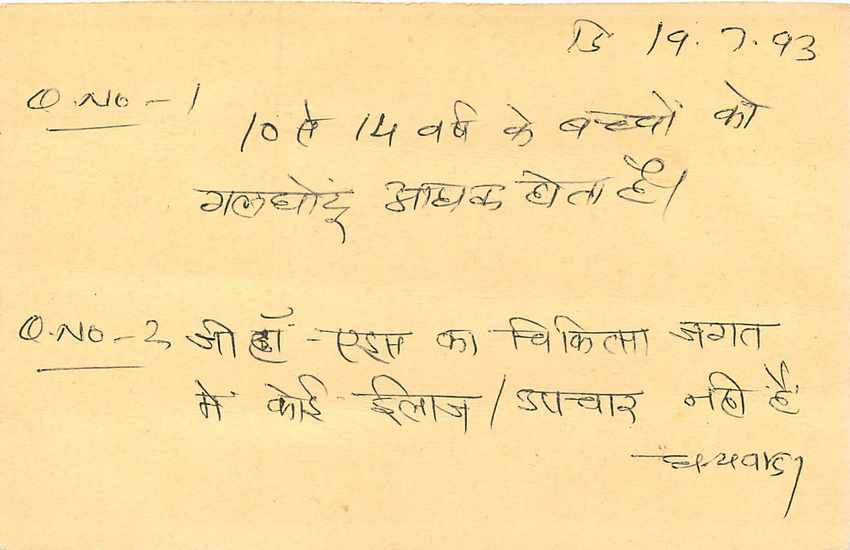 दि 19.7.93
Q.No - 1
10 से 14 वर्ष के बच्चों को
गलघोटू अधिक होता है।
Q.No - 2 जी हाँ - एड्स का चिकित्सा जगत
मे कोई ईलाज / उपचार नही है
धन्यवाद